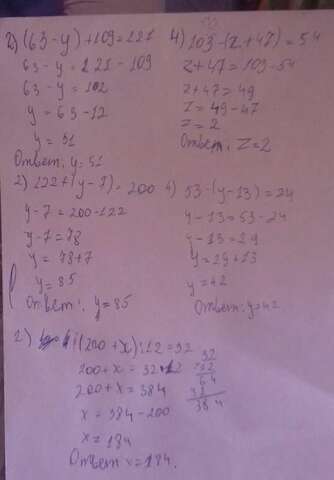 2) (63-y)+109=121
63-y=121-109
63-y=102
y=63-12
y=51
Ответ: y=51
4) 103-(z+47)=54
z+47=103-54
z+47=49
z=49-47
z=2
Ответ: z=2
2) 122+(y-7)=200
y-7=200-122
y-7=78
y=78+7
y=85
Ответ: y=85
4) 53-(y-13)=24
y-13=53-24
y-13=29
y=29+13
y=42
Ответ: y=42
2) (200+x):12=32
200+x=32·12
200+x=384
x=384-200
x=184
Ответ x=184.
32
12
64
32
384